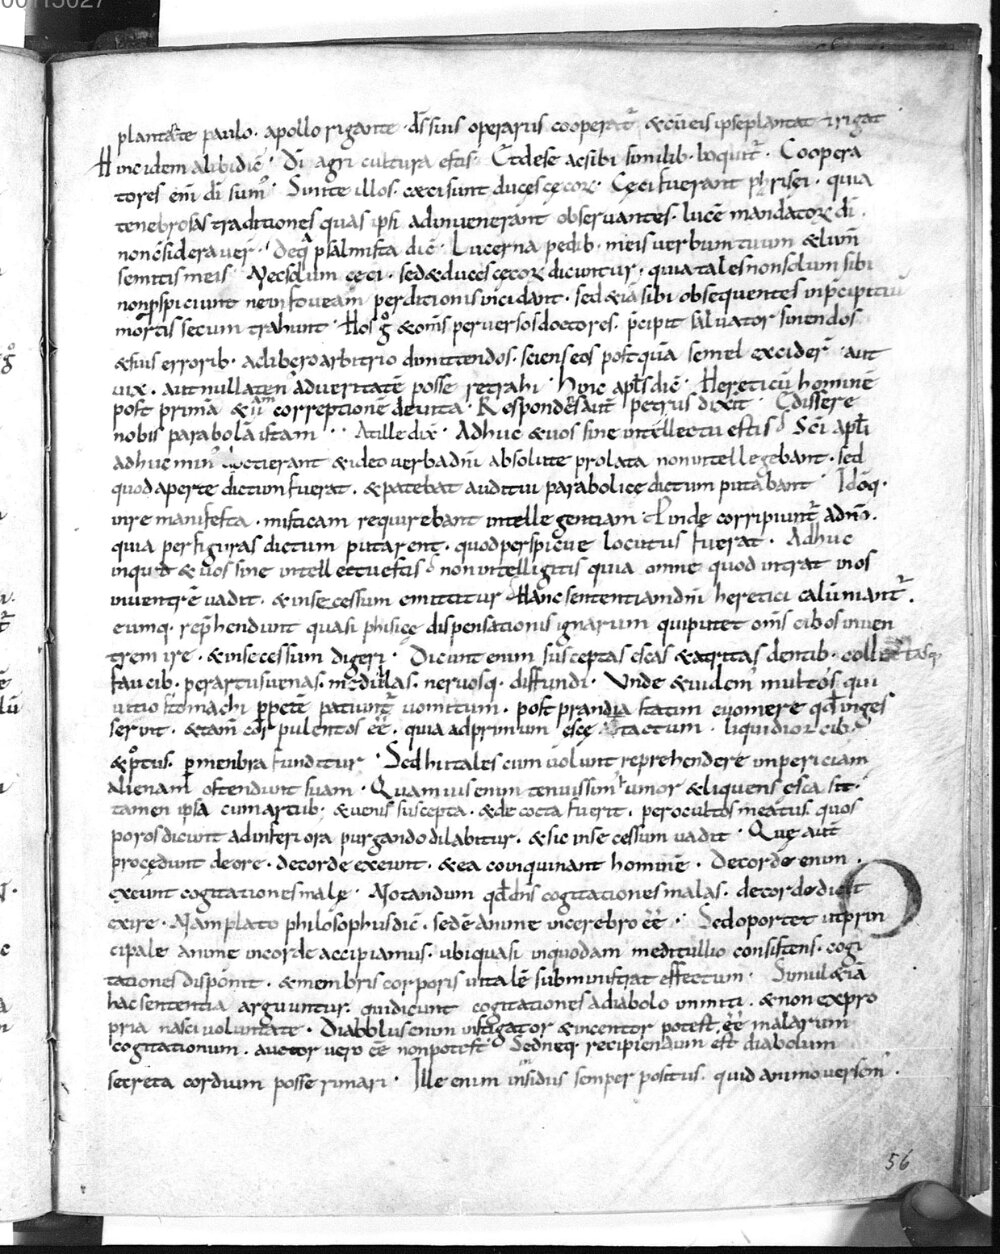 plantante paulo. apollo rigante. d̄s suis operariis cooperat̄. & cū eis ipse plantat & rigat
Hinc idem alibi dic̄. Dī agri cultura estis. Et de se ac sibi similib. loquit̄. Coopera
tores eni dī sum̄. Sinite illos. cęci sunt duces cęcoꝝ. Cęci fuerant phrisęi. quia
tenebrosas traditiones quas ipsi adinvenerant observantes. lucē mandatoꝝ dī.
non c̄siderauer̄. De q̄ psalmista dic̄. Lucerna pedib. meis verbum tuum & lum̄
semitis meis. Nec solum cęci. sed & duces cęcoꝝ dicuntur. quia tales non solum sibi
non ꝑspiciunt ne in foveam perditionis incidant. sed & iā sibi obsequentes in p̄cipitiu
mortis secum trahunt. Hos g̊ & om̄s perversos doctores. p̄cipit salvator sinendos
& suis errorib. ac libero arbitrio dimittendos. sciens eos postquā semel excider̄. aut
vix. aut nullaten᾽ ad veritatē posse retrahi. Hinc apl̄s dic̄. Hereticū hominē
post primā & un᾽ correptionē devita. Respondens aut̄ petrus dixit. Edissere
nobis parabolā istam. At ille dix̄. Adhuc & vos sine intellectu estis? Sc̄i apl̄i
adhuc min᾽ docti erant & ideo verba dn̄i absolute prolata non intellegebant. sed
quod aperte dictum fuerat. & patebat auditui parabolice dictum putabant. Id̄oq.
in re manifesta. misticam requirebant intellegentiam. Unde corripiunt̄ a dn̄o.
quia per figuras dictum putarent. quod perspicue locutus fuerat. Adhuc
inquid & vos sine intellectu estis? non intelligitis quia omne quod intrat in os
in ventrē vadit. & in secessum emittitur. Hanc sententiam dn̄i heretici calūniant̄.
eumq. rep̄hendunt quasi phisicę dispensationis ignarum qui putet om̄s cibos in ven
trem ire. & in secessum digeri. Dicunt enim susceptas escas & atritas dentib. collectasq
faucib. per artus venas. medullas. nervosq. diffundi. Unde & videm᾽ multos qui
vitio stomachi ꝑpetē patiunt̄ vomitum. post prandia statim evomere qđ inges
serint. & tam̄ corpulentos eē. quia ad primum escę tactum. liquidior cib᾽
& potus. ꝑ menbra funditur. Sed hi tales cum volunt reprehendere imperitiam
alienam ostendunt suam. Quamvis enim tenuissim᾽ umor & liquens esca sit.
tamen ipsa cum artub; & venis suscepta. & decocta fuerit. per ocultos meatus. quos
poros dicunt ad inferiora purgando dilabitur. & sic in secessum vadit. Quę aut̄
procędunt de ore. de corde exeunt. & ea coinquinant hominē. De corde enim.
exeunt cogitationes malę. Notandum qđ d̄ns cogitationes malas. de corde dicit
exire. Nam plato philosophus dic̄. sedē anime in cerebro eē. Sed oportet ut prin
cipale anime in corde accipiamus. ubi quasi in quodam meditullio consistens. cogi
tationes disponit. & membris corporis vitalē subministrat effectum. Simul & iā
hac sententia arguuntur. qui dicunt cogitationes a diabolo inmiti. & non ex pro
pria nasci voluntate. Diabolus enim instigator & incentor potest eē malarum
cogitationum. auctor vero eē non potest. Sed neq. recipiendum est diabolum
secreta cordium posse rimari. Ille enim insidiis semper positus. quid animo versem᾽.
56